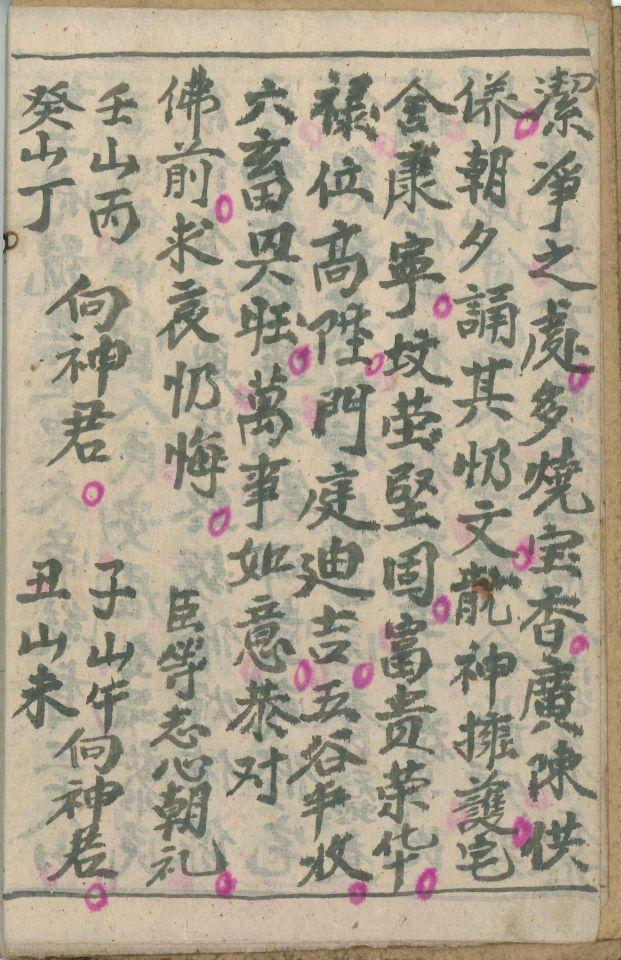 潔凈之處多燒宝香廣陳供
朝夕誦其忏文龍神擁護宅
舍康寧坟茔堅固富贵荣华
禄位高陞門庭迪吉五谷半收
六畜兴旺萬事如意恭对
佛前求哀忏悔 臣等志心朝礼
壬山丙
癸山丁
向神君
子山午
丑山未
向神君